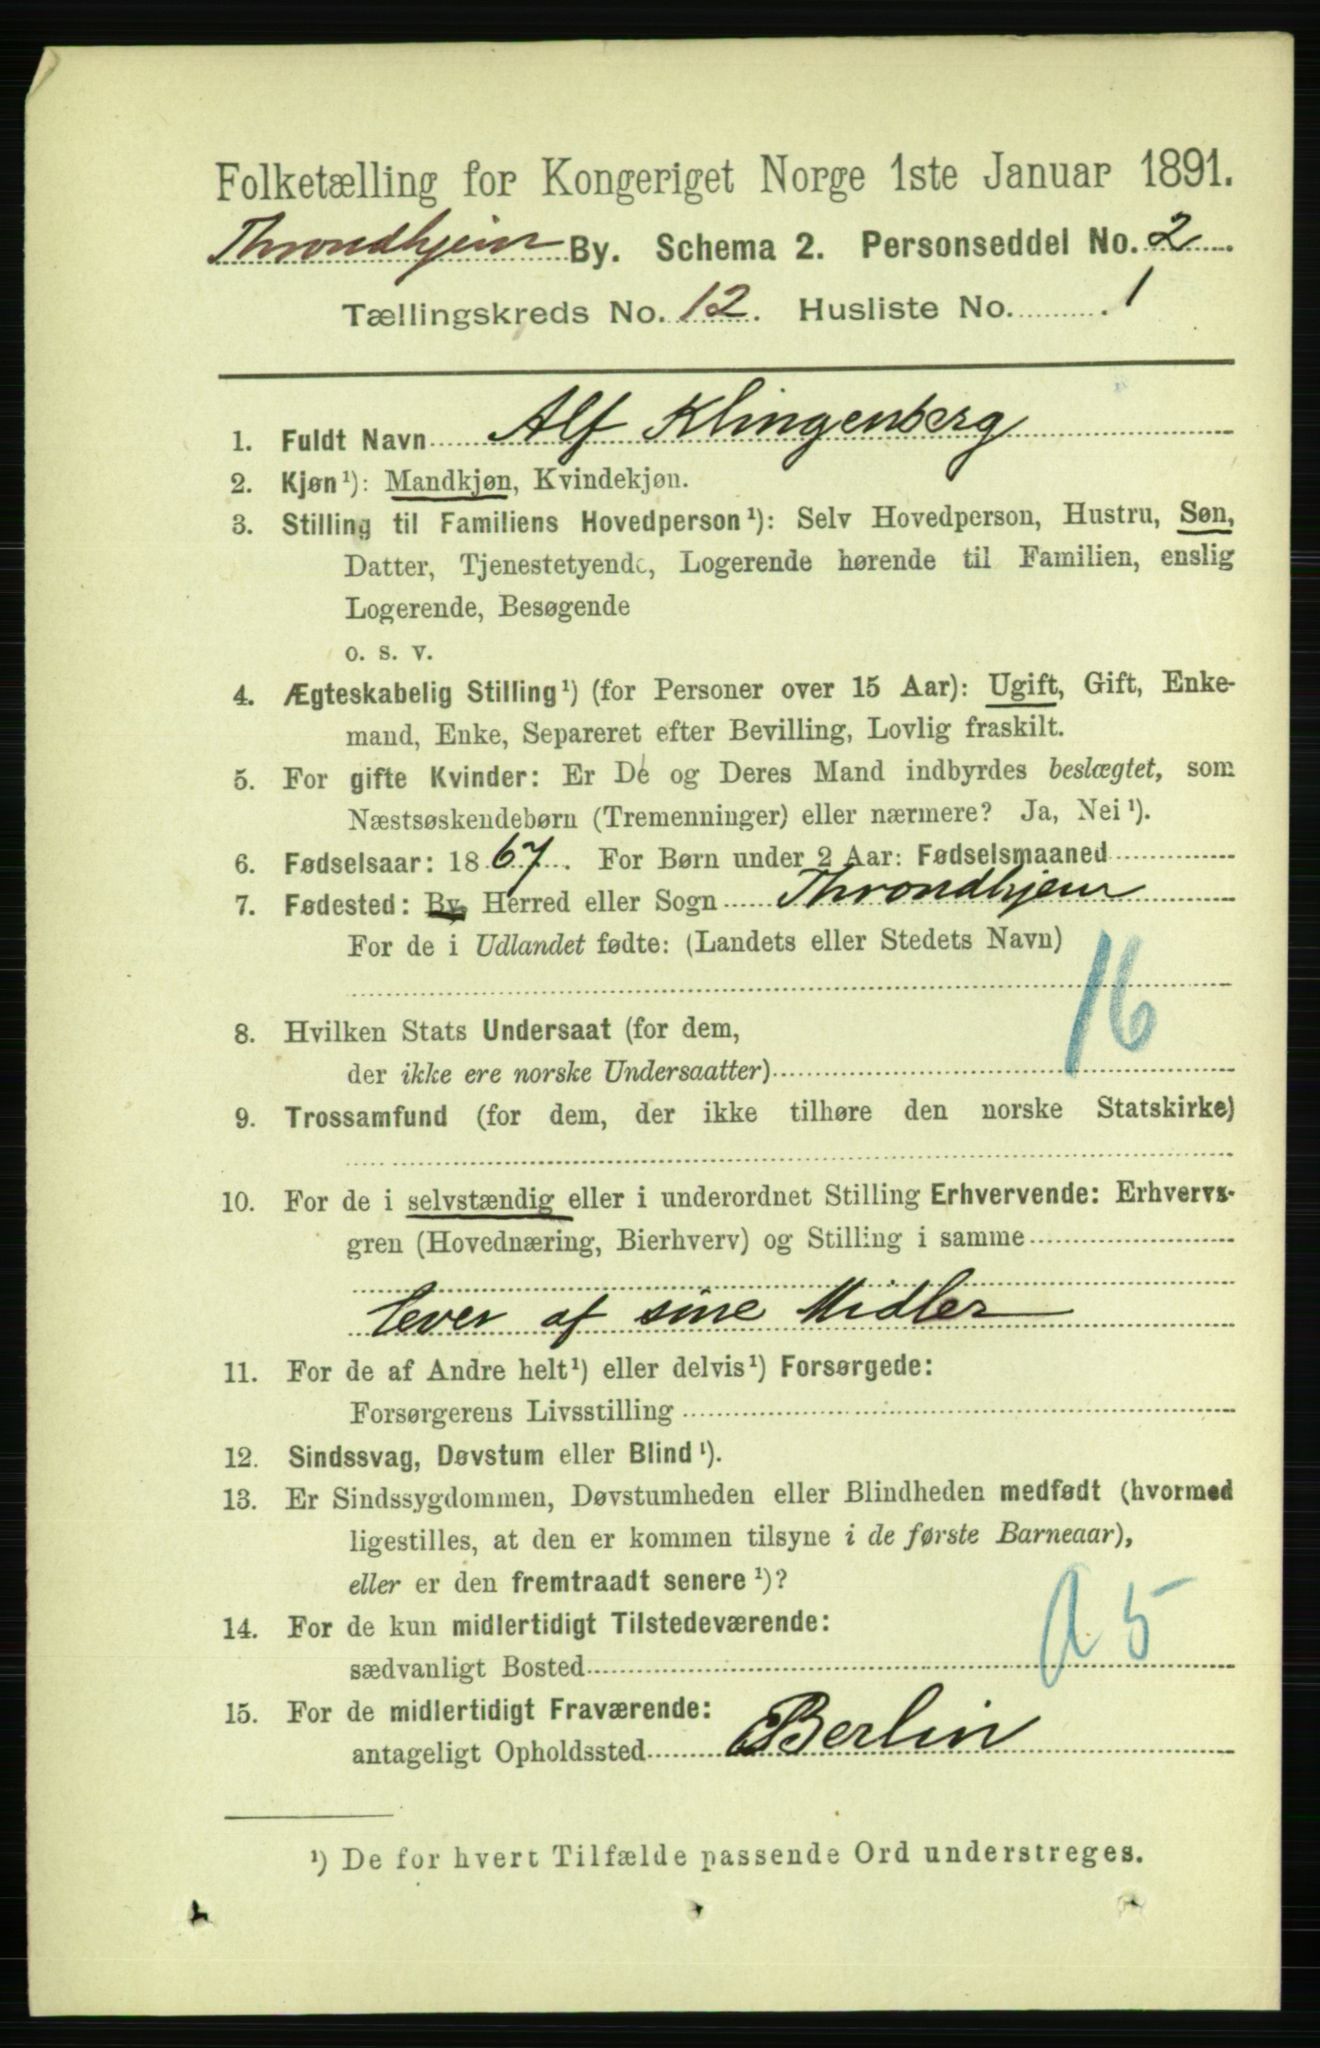 Folketælling for Kongeriget Norge 1ste Januar 1891.
Throndhjem By. Schema 2. Personseddel No. 2.
Tællingskreds No. 12. Husliste No. 1
1. Fuldt Navn Alf Klingenberg
2. Kjøn¹): Mandkjøn, Kvindekjøn.
3. Stilling til Familiens Hovedperson¹): Selv Hovedperson, Hustru, Søn,
Datter, Tjenestetyende, Logerende hørende til Familien, enslig
Logerende, Besøgende
o. s. v.
4. Ægteskabelig Stilling¹) (for Personer over 15 Aar): Ugift, Gift, Enke-
mand, Enke, Separeret efter Bevilling, Lovlig fraskilt.
5. For gifte Kvinder: Er De og Deres Mand indbyrdes beslægtet, som
Næstsøskendebørn (Tremenninger) eller nærmere? Ja, Nei¹).
6. Fødselsaar: 1867. For Børn under 2 Aar: Fødselsmaaned
7. Fødested: By, Herred eller Sogn Throndhjem
For de i Udlandet fødte: (Landets eller Stedets Navn)
16
8. Hvilken Stats Undersaat (for dem,
der ikke ere norske Undersaatter)
9. Trossamfund (for dem, der ikke tilhøre den norske Statskirke)
10. For de i selvstændig eller i underordnet Stilling Erhvervende: Erhvervs-
gren (Hovednæring, Bierhverv) og Stilling i samme
lever af sine Midler
11. For de af Andre helt¹) eller delvis¹) Forsørgede:
Forsørgerens Livsstilling
12. Sindssvag, Døvstum eller Blind¹).
13. Er Sindssygdommen, Døvstumheden eller Blindheden medfødt (hvormed
ligestilles, at den er kommen tilsyne i de første Barneaar),
eller er den fremtraadt senere¹)?
14. For de kun midlertidigt Tilstedeværende:
sædvanligt Bosted
a 5
15. For de midlertidigt Fraværende:
antageligt Opholdssted Berlin
¹) De for hvert Tilfælde passende Ord understreges.